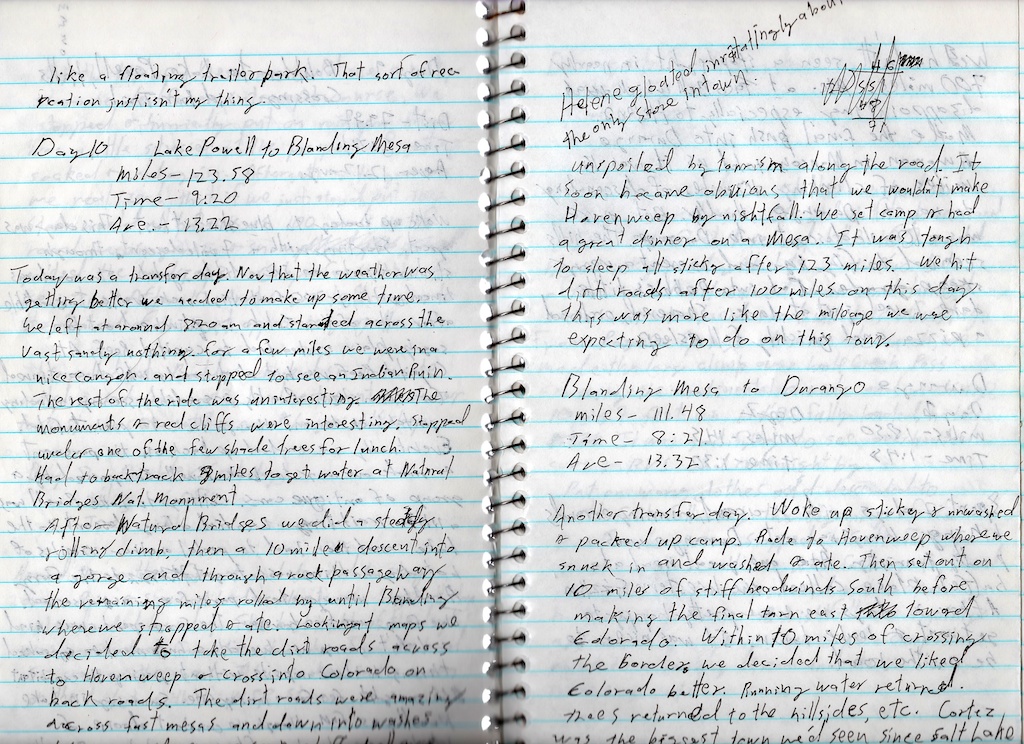 like a floating trailer park. That sort of rec
reation just isn't my thing.
Day 10 Lake Powell to Blanding Mesa
Miles - 123.58
Time - 9:20
Ave. - 13.22
Today was a transfer day. Now that the weather was
getting better we needed to make up some time.
We left at around 8:20 am and started across the
vast sandy nothing. for a few miles we were in a
nice canyon. and stopped to see an Indian Ruin.
The rest of the ride was uninteresting The
monuments & red cliffs were interesting. stopped
under one of the few shade trees for lunch.
Had to backtrack miles to get water at Natural
Bridges Nat. Monument
After Natural Bridges we did a
rolling climb, then a 10 mile descent into
a gorge and through a rock passageway
the remaining miles rolled by until Blanding
where we stopped & ate. Looking at maps we
decided to take the dirt roads across
to Hovenweep & cross into Colorado on
back roads. The dirt roads were amazing
across fast mesas and down into washes
Helene gloated irritatingly about
the only store in town.
unspoiled by tourism along the road. It
soon became obvious that we wouldn't make
Hovenweep by nightfall. We set camp & had
a great dinner on a Mesa. It was tough
to sleep all sticky after 123 miles. We hit
dirt roads after 100 miles on this day
this was more like the mileage we were
expecting to do on this tour.
Blanding Mesa to Durango
miles - 111.48
Time - 8:21
Ave - 13.32
Another transfer day. Woke up sticky & unwashed
& packed up camp. Rode to Hovenweep where we
snuck in and washed & ate. Then set out on
10 miles of stiff headwinds south before
making the final turn east toward
Colorado. Within 10 miles of crossing
the border we decided that we liked
Colorado better. Running water returned.
trees returned to the hillsides, etc. Cortez
was the biggest town we'd seen since Salt Lake